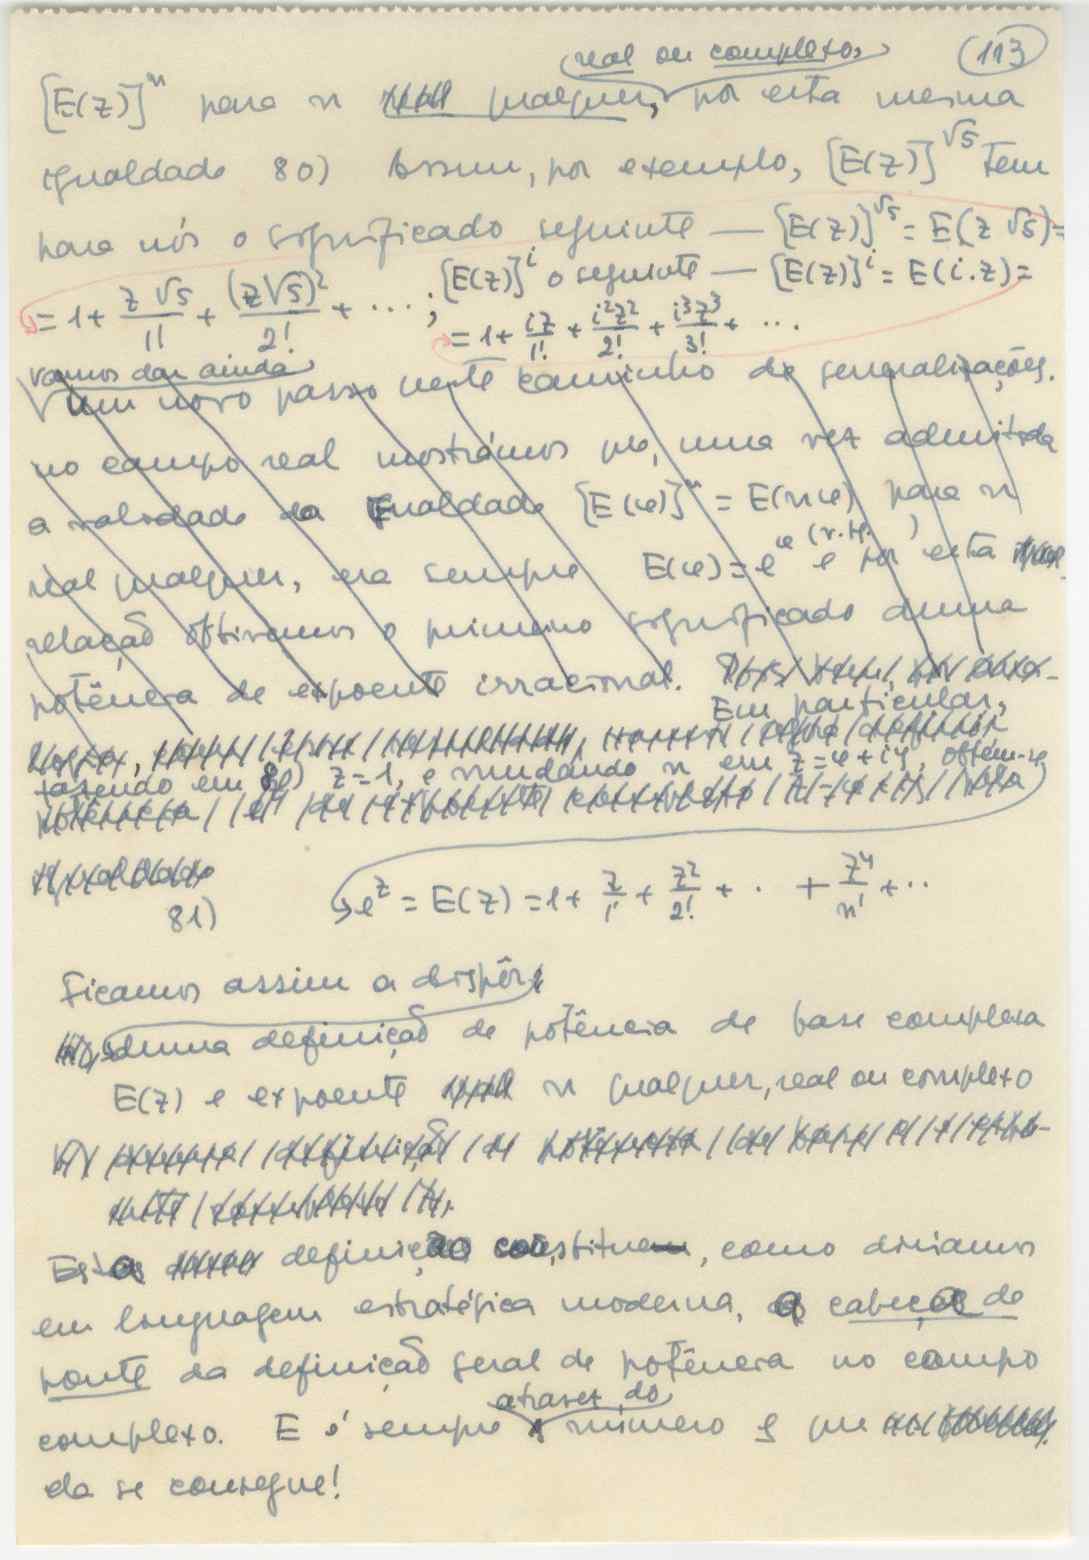 (113)
real ou complexo,
[E(z)]^n para n qualquer, por esta mesma
igualdade 80) Assim, por exemplo, [E(z)]^√5 tem
para nós o significado seguinte — [E(z)]^√5 = E(z √5) =
= 1 + z√5/1! + (z√5)²/2! + ...; [E(z)]^i o seguinte — [E(z)]^i = E(i.z) =
= 1 + iz/1! + i²z²/2! + i³z³/3! + ...
vamos dar ainda
um novo passo neste caminho de generalizações.
no campo real mostrámos que, uma vez admitida
a validade da igualdade [E(φ)]^n = E(nφ) para n
real qualquer, era sempre E(φ) = e^φ e por esta
relação obtivemos o primeiro significado duma
potência de expoente irracional.
Em particular,
fazendo em 80) z=1, e mudando n em z=φ+iy, obtem-se
81) e^z = E(z) = 1 + z/1! + z²/2! + . + z^n/n! + ..
Ficamos assim a dispôr
duma definição de potência de base complexa
E(z) e expoente n qualquer, real ou complexo
Esta definição constitue, como diriamos
em linguagem estratégica moderna, a cabeça de
ponte da definição geral de potência no campo
complexo. E é sempre através do número e que
ela se consegue!